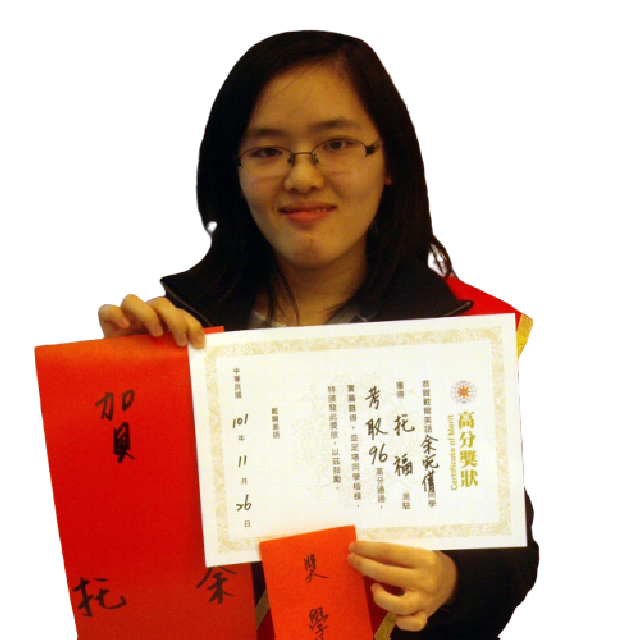 高分獎狀
Certificate of Merit
恭賀戴爾美語余倩同學
獲得 托福 測驗
考取96高分通過，
實屬難得，並足堪同學楷模，
特頒發此獎狀，以茲鼓勵。
戴爾美語
中華民國 101 年 11 月 26 日
賀
余
托
獎學